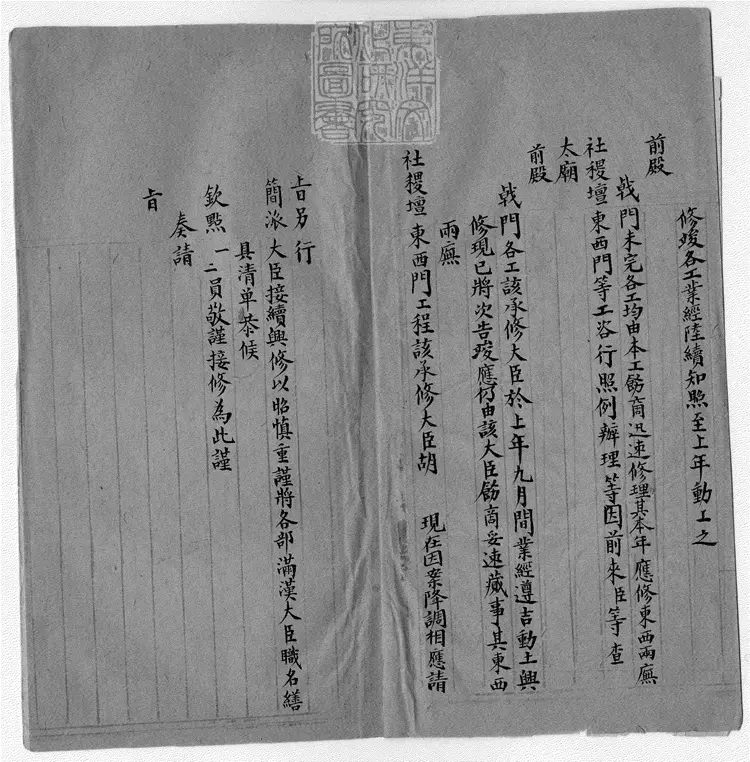 東洋文
化研究
所圖書
修竣各工業經陸續知照至上年動工之
前殿
戟門未完各工均由本工飭商迅速修理其本年應修東西兩廡
社稷壇東西門等工咨行照例辦理等因前來臣等查
太廟
前殿
戟門各工該承修大臣於上年九月間業經遵吉動土興
修現已將次告竣應仍由該大臣飭商妥速蕆事其東西
兩廡
社稷壇東西門工程該承修大臣胡 現在因案降調相應請
旨另行
簡派大臣接續興修以昭慎重謹將各部滿漢大臣職名繕
具清单恭候
欽點一二員敬謹接修為此謹
奏請
旨